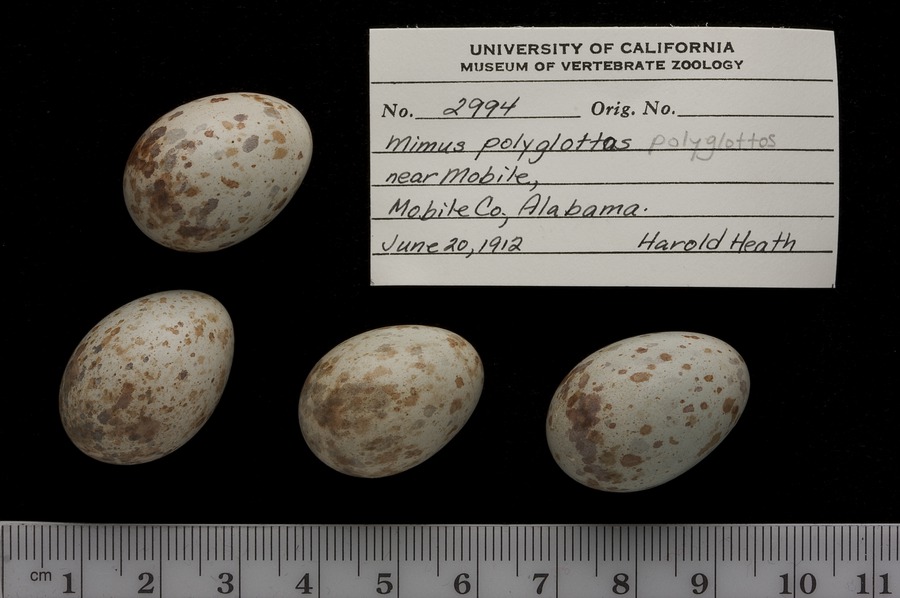 UNIVERSITY OF CALIFORNIA
MUSEUM OF VERTEBRATE ZOOLOGY
No. 2994 Orig. No.
Mimus polyglottos polyglottos
near Mobile,
Mobile Co., Alabama.
June 20, 1912 Harold Heath
cm 1 2 3 4 5 6 7 8 9 10 11